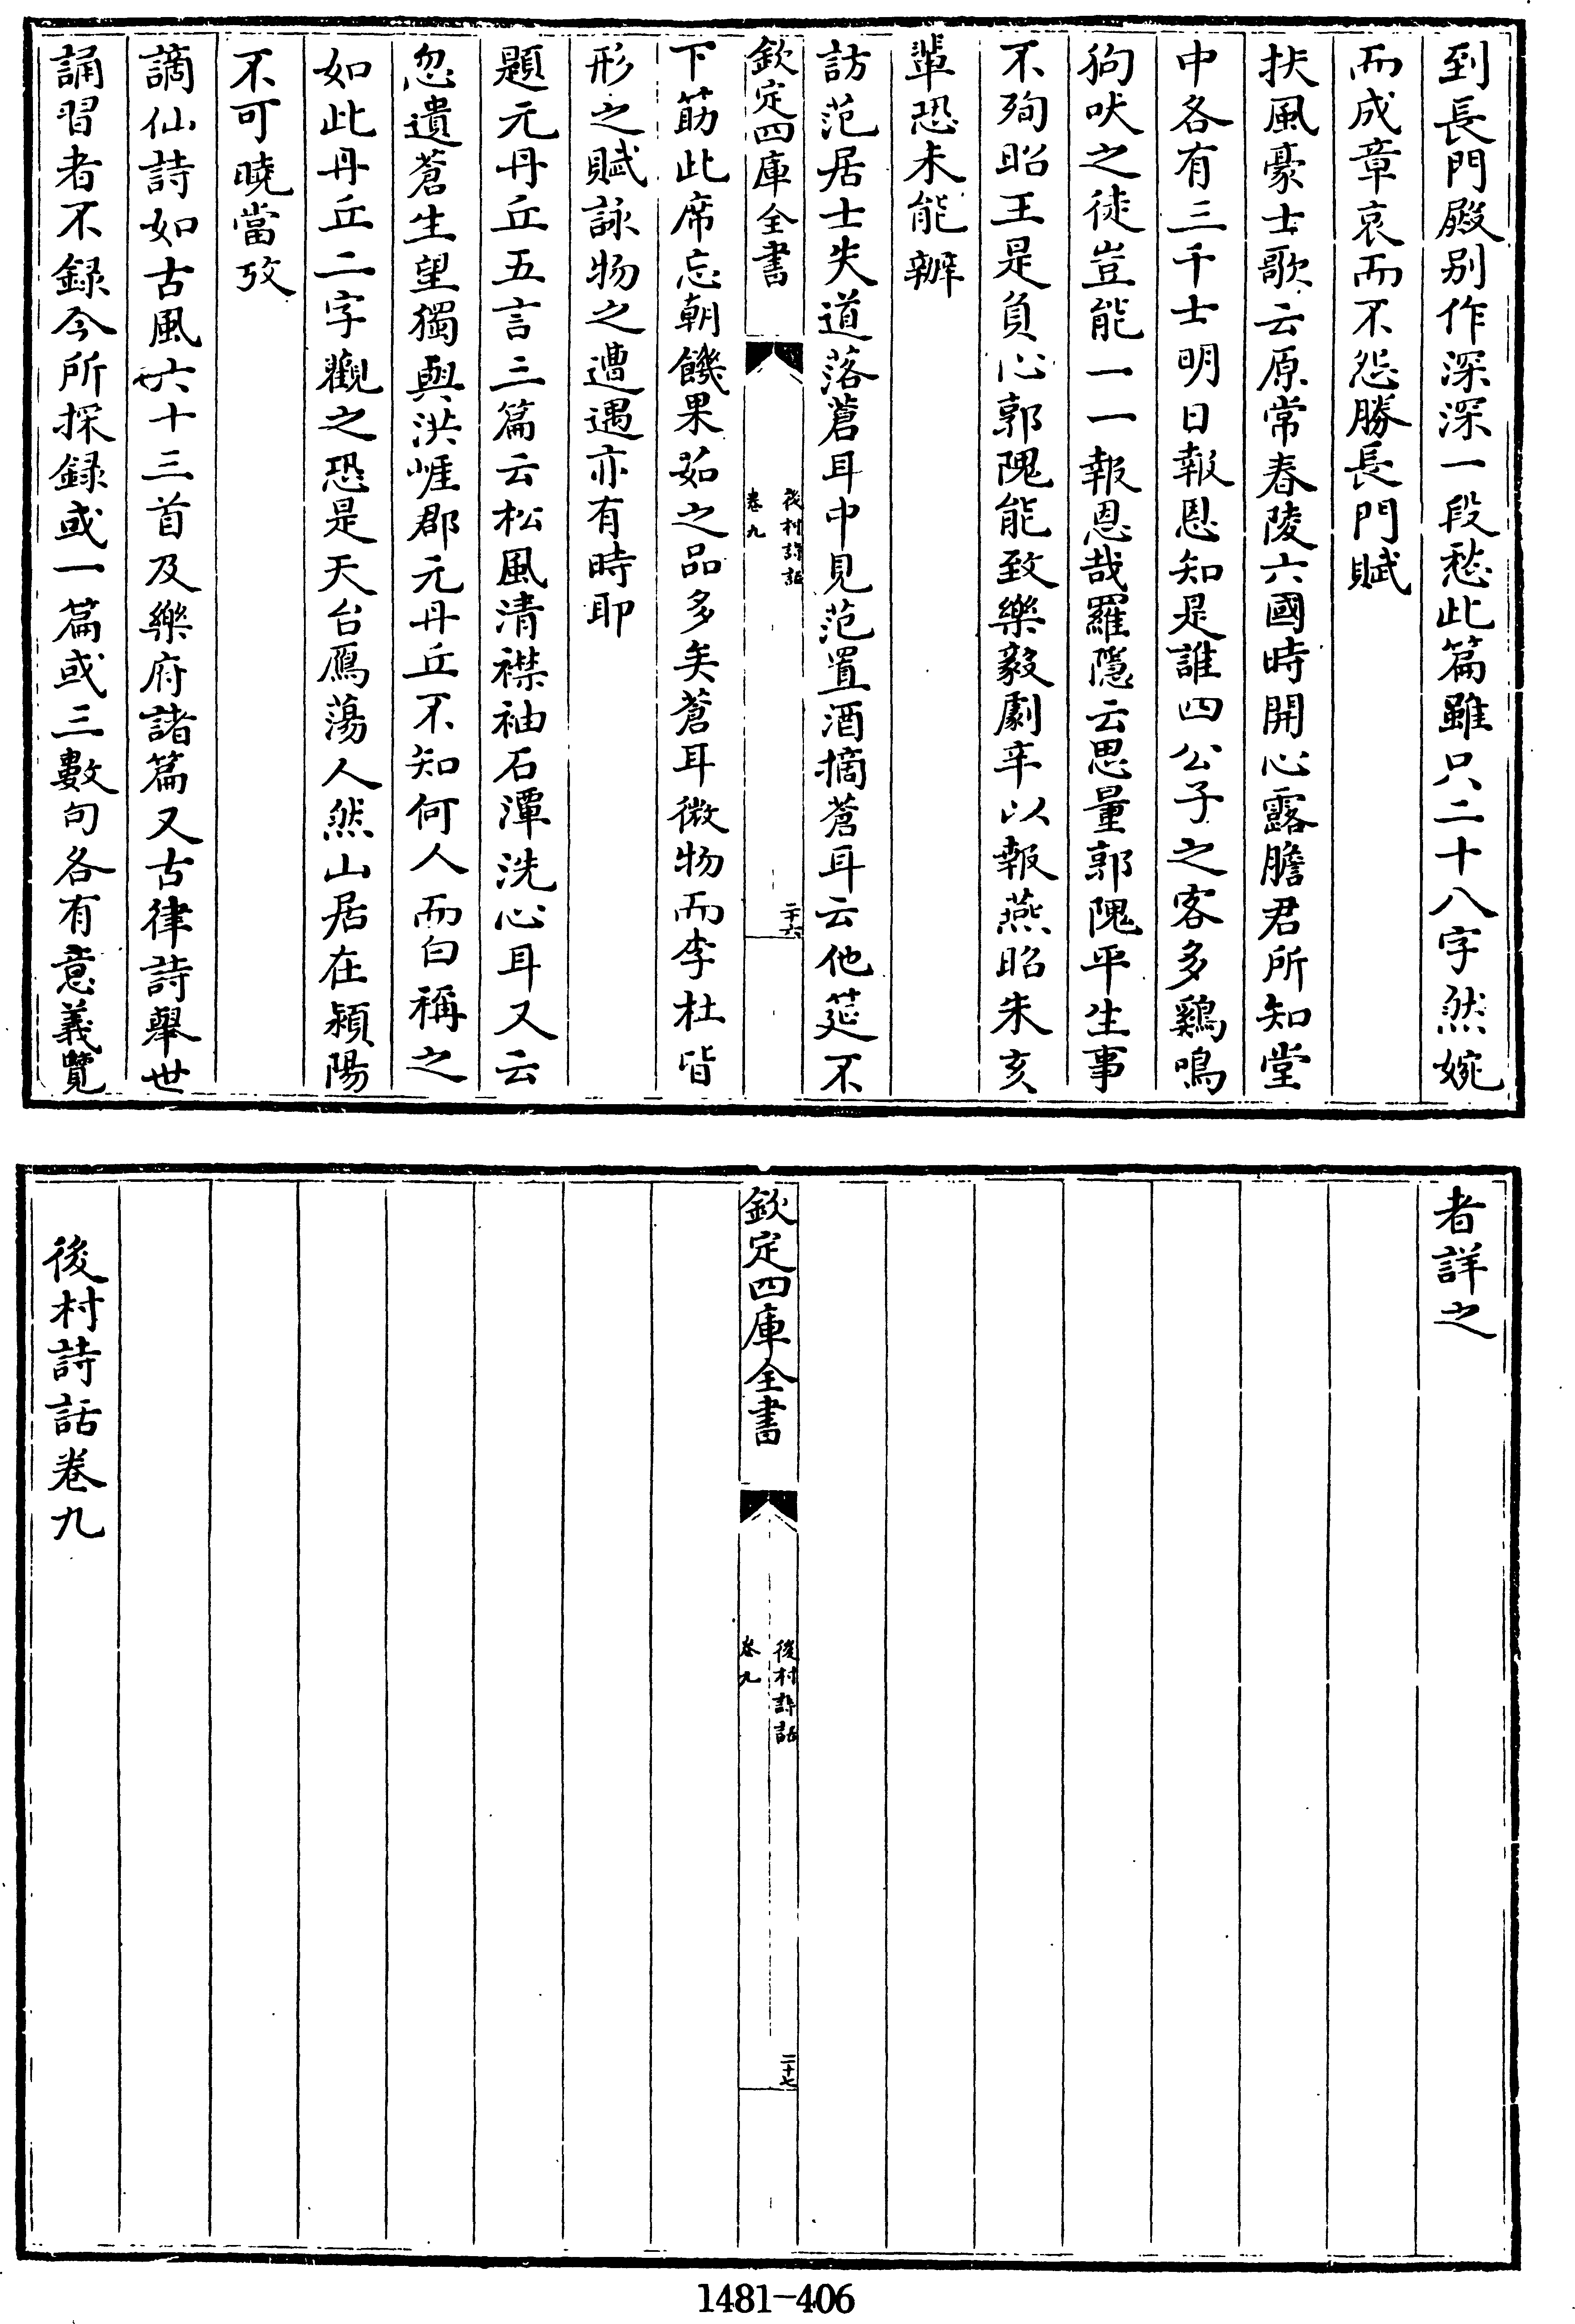 到長門殿别作深深一段愁此篇雖只二十八字然婉
而成章哀而不怨勝長門賦
扶風豪士歌云原常春陵六國時開心露膽君所知堂
中各有三千士明日報恩知是誰四公子之客多鷄鳴
狗吠之徒豈能一一報恩哉羅隱云思量郭隗平生事
不殉昭王是負心郭隗能致樂毅劇辛以報燕昭朱亥
輩恐未能辦
訪范居士失道落蒼耳中見范置酒摘蒼耳云他筵不
欽定四庫全書
後村詩話
卷九
二十六
下筯此席忘朝饑果茹之品多矣蒼耳微物而李杜皆
形之賦詠物之遭遇亦有時耶
題元丹丘五言三篇云松風清襟袖石潭洗心耳又云
忽遺蒼生望獨與洪崖郡元丹丘不知何人而白稱之
如此丹丘二字觀之恐是天台鴈蕩人然山居在潁陽
不可曉當攷
謫仙詩如古風六十三首及樂府諸篇又古律詩舉世
誦習者不録今所採録或一篇或三數句各有意義覽
者詳之
欽定四庫全書
後村詩話
卷九
二十七
後村詩話卷九
1481-406